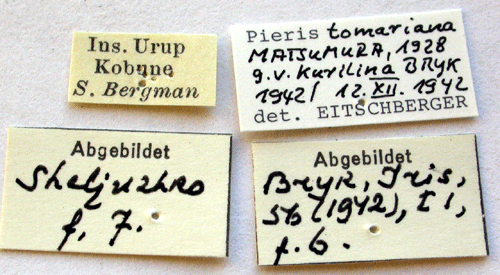 Ins. Urup
Kobune
S. Bergman
Pieris tomariana
MATSUMURA, 1928
g.v. Kurilina BRYK
1942/ 12. XII. 1942
det. EITSCHBERGER
Abgebildet
Sheljuzhko
f. 7.
Abgebildet
Bryk, Iris,
56 (1942), T1,
f. 6.